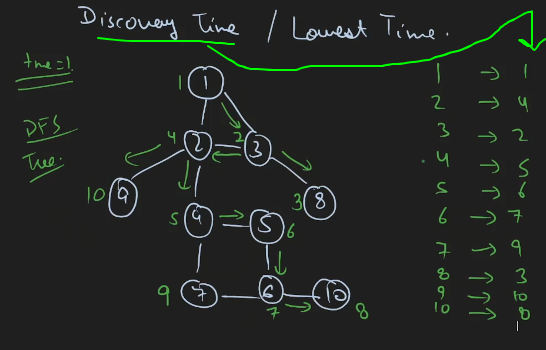 Discovery Time / Lowest Time.
time=1
DFS
Tree.
1 1
4 2 2 3
10 9
3 8
5 4 5 6
9 7 6 10
7 8
1 → 1
2 → 4
3 → 2
4 → 5
5 → 6
6 → 7
7 → 9
8 → 3
9 → 10
10 → 8